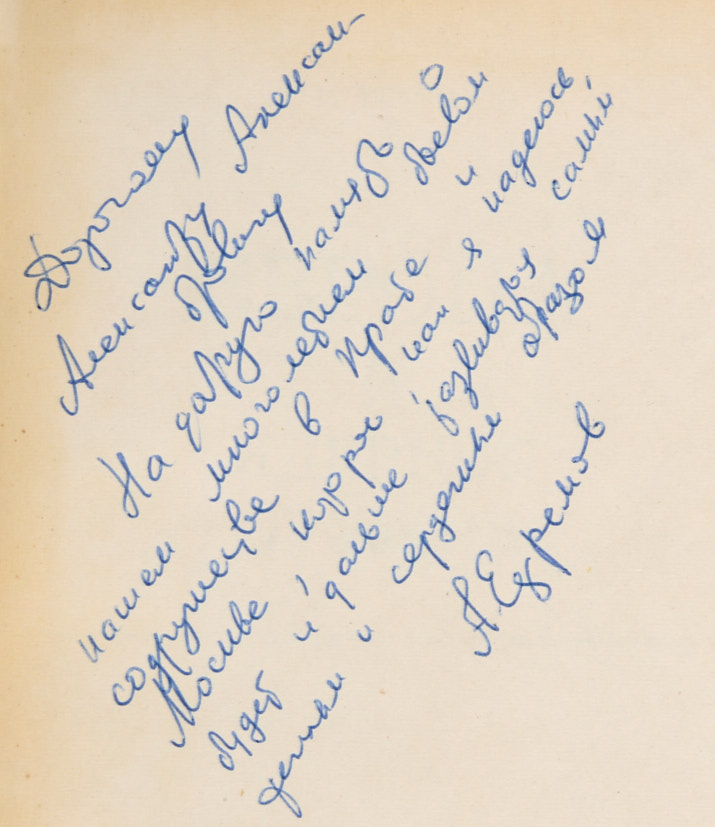 Дорогому
Александру Алексан-
дровичу
На добрую память о
нашем многолетнем боевом
содружестве в Праге и
Москве, которое как я надеюсь,
будет и дальше развиваться самым
тесным и сердечным образом
А. Ефремов